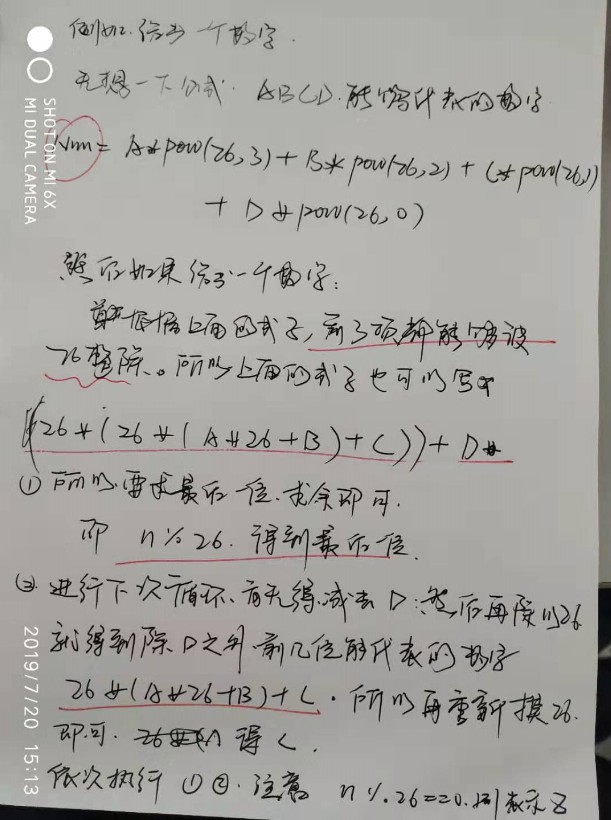 例如.给出一个数字.
先想一下公式. ABCD.能够代表的数字
Num = A*pow(26,3) + B*pow(26,2) + C*pow(26,1)
+ D*pow(26,0)
然后如果给出一个数字:
首先根据上面的式子,前3项都能够被
26整除。所以上面的式子也可以写
(26*(26*(A*26+B)+C))+D*
① 所以要求最后一位.求余即可.
即 n%26. 得到最后一位.
② 进行下次循环.首先得减去D;然后再除以26
就得到除D之外.前几位能代表的数字
26*(A*26+B)+C. 所以再重新摸26.
即可. 得C.
依次执行 ①②. 注意 n%26==0.则表示Z
SHOT ON MI 6X
MI DUAL CAMERA
2019/7/20 15:13